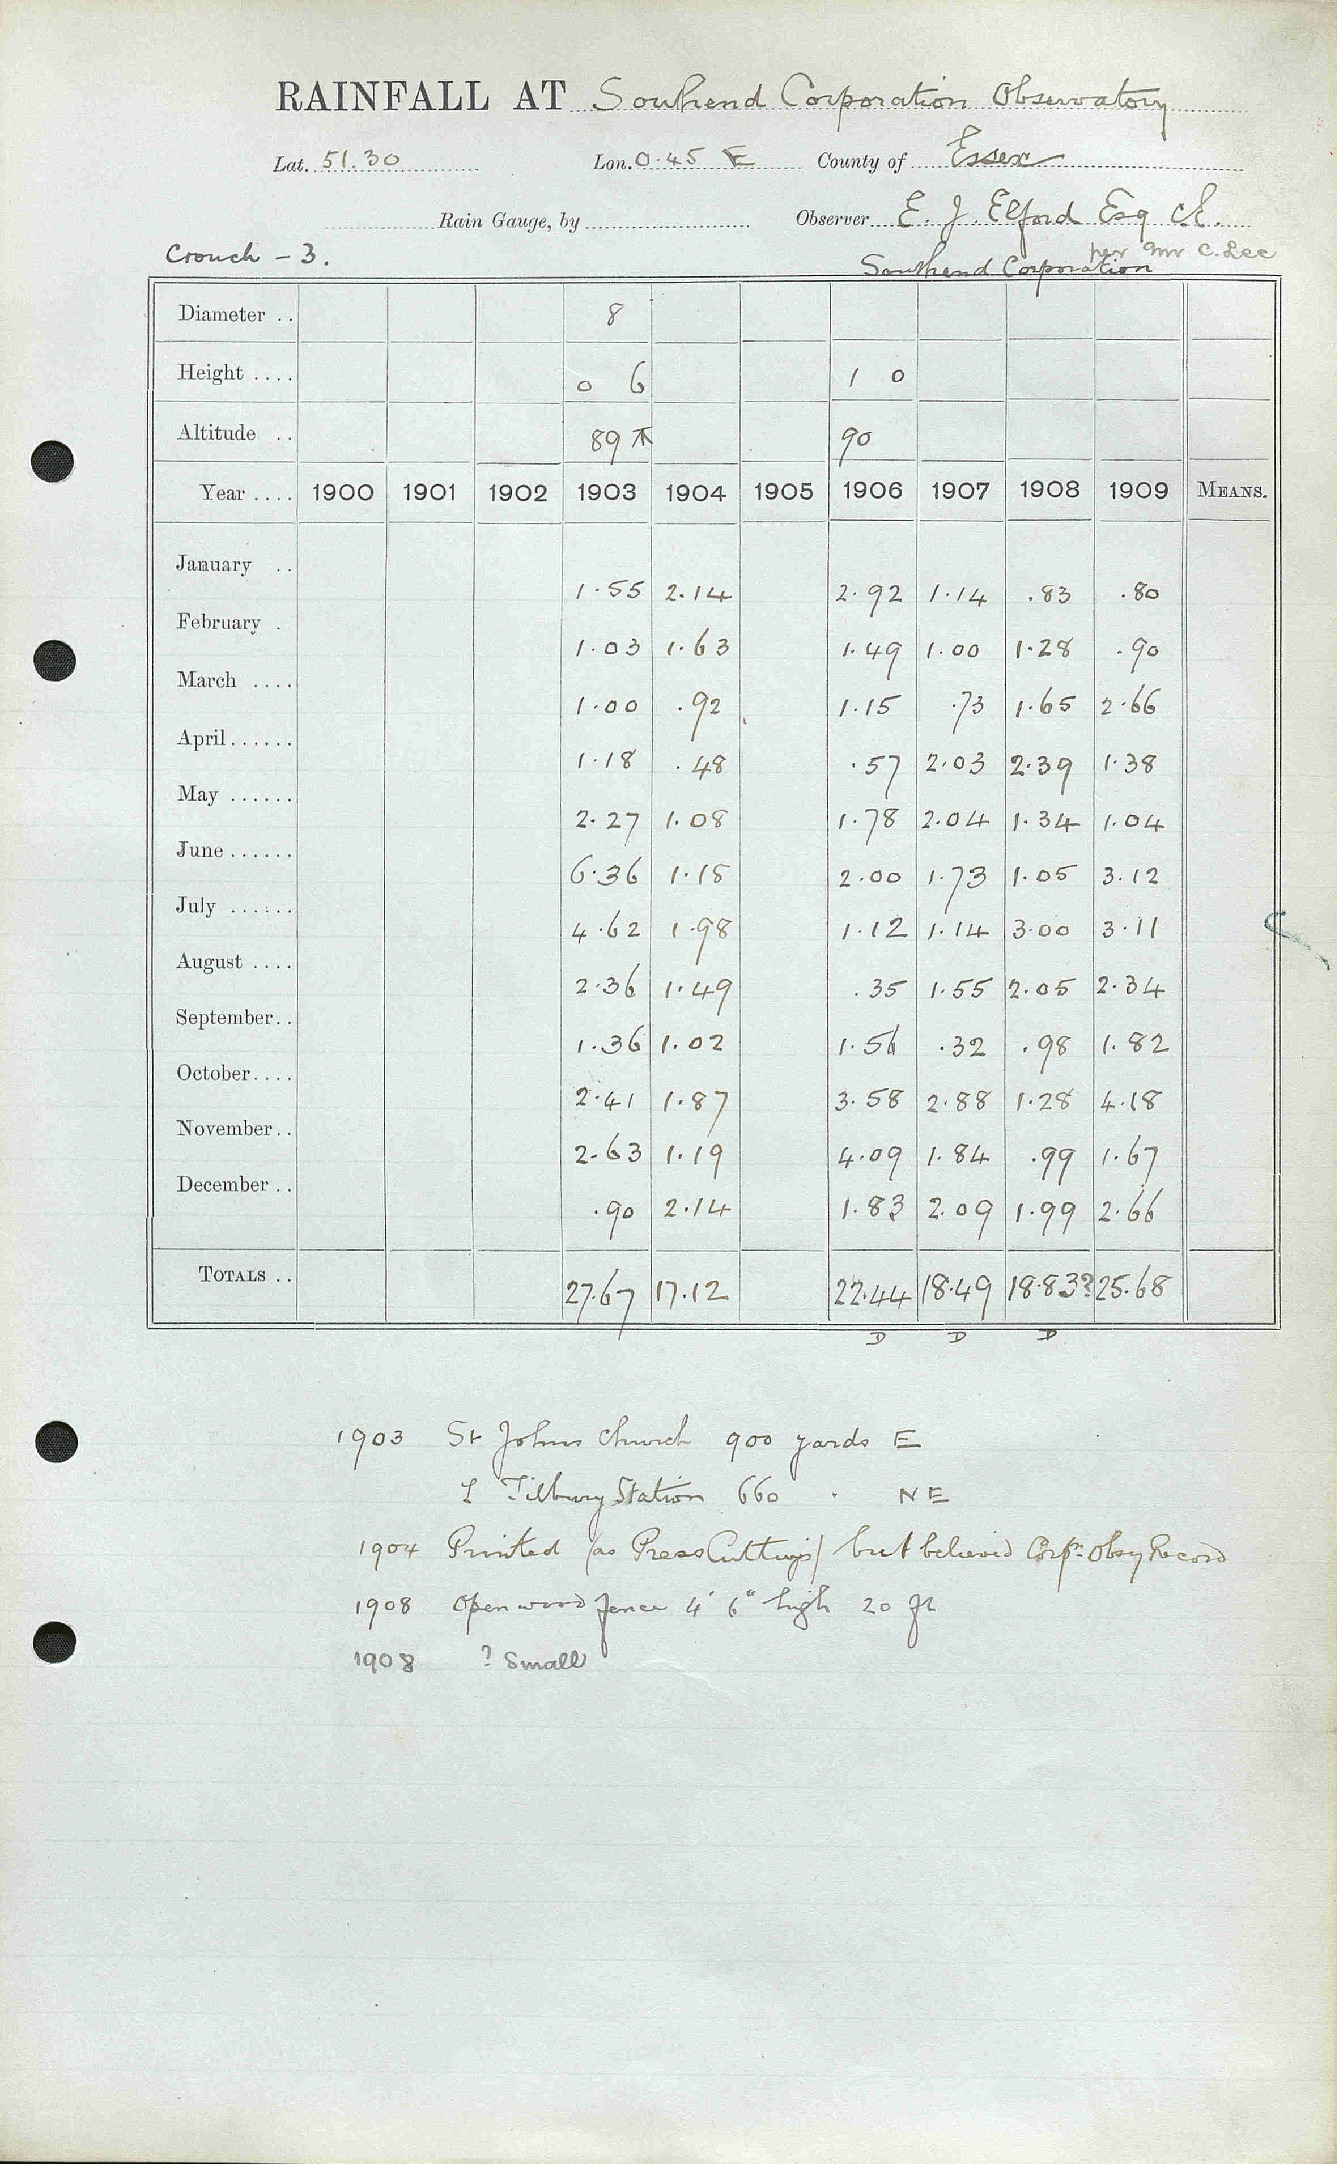 RAINFALL AT Southend Corporation Observatory
Lat. 51.30 Lon. 0.45 E County of Essex
Rain Gauge, by Observer E. J. Elford Esq C.E.
Crouch - 3. per Mr C. Lee
Southend Corporation
Diameter .. 8
Height .... 0 6 1 0
Altitude .. 89 90
Year .... 1900 1901 1902 1903 1904 1905 1906 1907 1908 1909 MEANS.
January .. 1.55 2.14 2.92 1.14 .83 .80
February . 1.03 1.63 1.49 1.00 1.28 .90
March .... 1.00 .92 1.15 .73 1.65 2.66
April...... 1.18 .48 .57 2.03 2.39 1.38
May ...... 2.27 1.08 1.78 2.04 1.34 1.04
June...... 6.36 1.15 2.00 1.73 1.05 3.12
July ...... 4.62 1.98 1.12 1.14 3.00 3.11
August .... 2.36 1.49 .35 1.55 2.05 2.34
September.. 1.36 1.02 1.56 .32 .98 1.82
October.... 2.41 1.87 3.58 2.88 1.28 4.18
November.. 2.63 1.19 4.09 1.84 .99 1.67
December .. .90 2.14 1.83 2.09 1.99 2.66
TOTALS .. 27.67 17.12 22.44 18.49 18.83? 25.68
D D D
1903 St Johns Church 900 yards E
Tilbury Station 660 . NE
1904 Printed (as Press Cuttings) but believed Corpn. Obsy Record
1908 Open wood fence 4' 6" high 20 ft
1908 ? Small